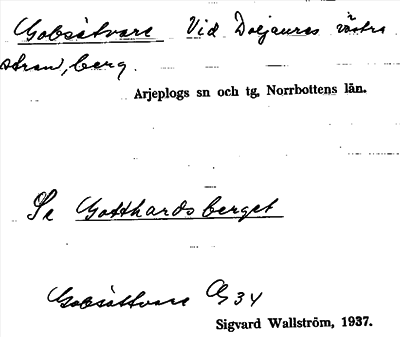 Gobsåtvare Vid Doljaures västra
stran, berg.
Arjeplogs sn och tg, Norrbottens län.
Se Gotthardsberget
Gobsåttvare G34
Sigvard Wallström, 1937.